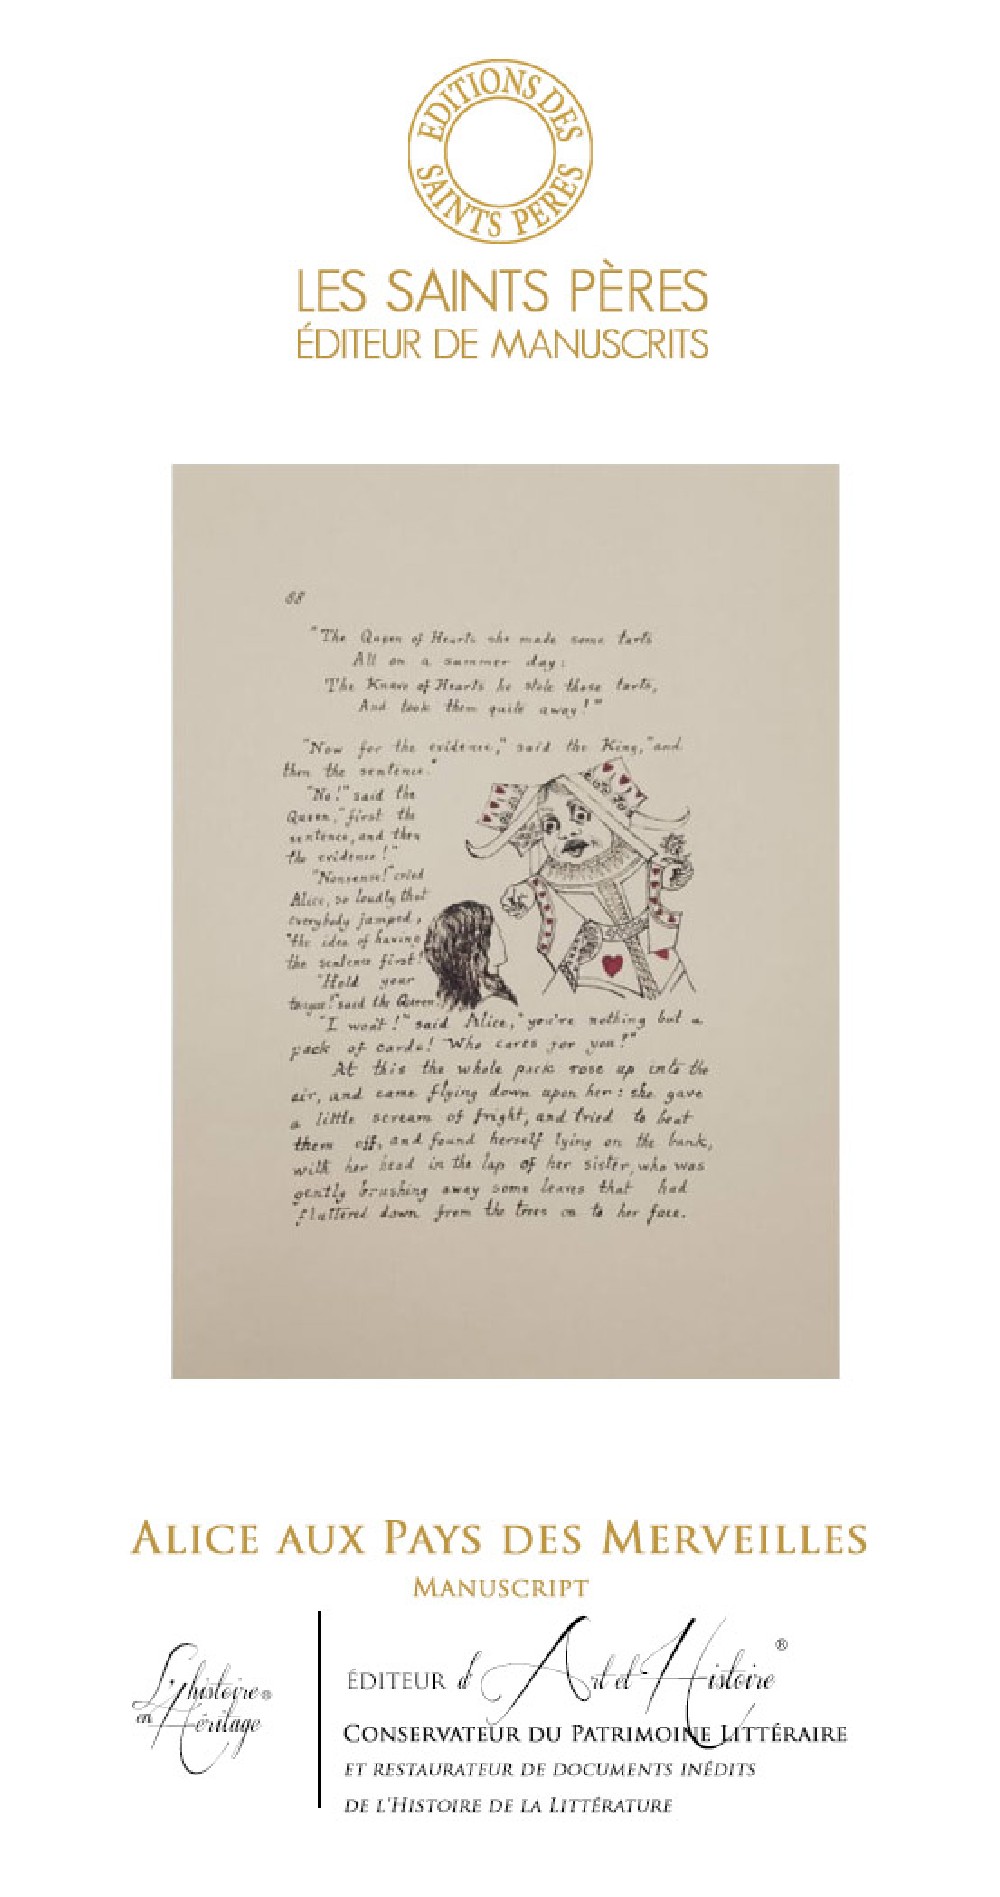 EDITIONS DES
SAINTS PERES
LES SAINTS PÈRES
ÉDITEUR DE MANUSCRITS
88
"The Queen of Hearts she made some tarts
All on a summer day:
The Knave of Hearts he stole those tarts,
And took them quite away!"
"Now for the evidence," said the King, "and
then the sentence."
"No!" said the
Queen, "first the
sentence, and then
the evidence!"
"Nonsense!" cried
Alice, so loudly that
everybody jumped,
"the idea of having
the sentence first!
"Hold your
tongue!" said the Queen.
"I won't!" said Alice, "you're nothing but a
pack of cards! Who cares for you?"
At this the whole pack rose up into the
air, and came flying down upon her: she gave
a little scream of fright, and tried to beat
them off, and found herself lying on the bank,
with her head in the lap of her sister, who was
gently brushing away some leaves that had
fluttered down from the trees on to her face.
ALICE AUX PAYS DES MERVEILLES
MANUSCRIPT
L'histoire®
en Héritage
ÉDITEUR d'Art et Histoire®
CONSERVATEUR DU PATRIMOINE LITTÉRAIRE
ET RESTAURATEUR DE DOCUMENTS INÉDITS
DE L'HISTOIRE DE LA LITTÉRATURE